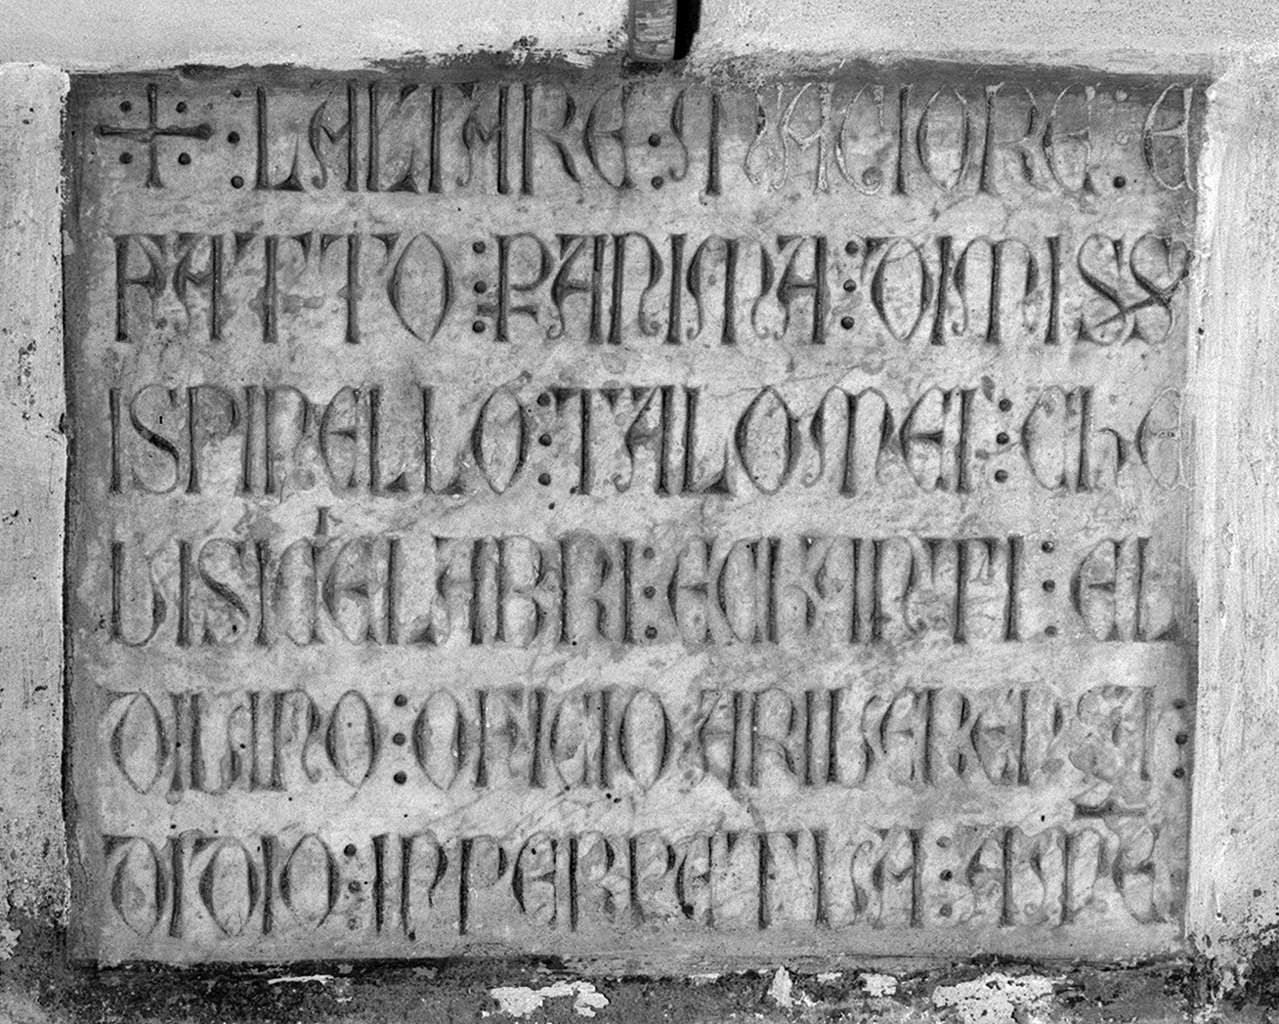 + : LALTARE : MACIORE : E
FATTO : P ANIMA : DIMISS
ISPINELLO : TALOMEI : CHE
VISICELABRI : ECHANTI : EL
DIVINO : OFICIO ARIVEREN
DIDIO : INPERPETUA :